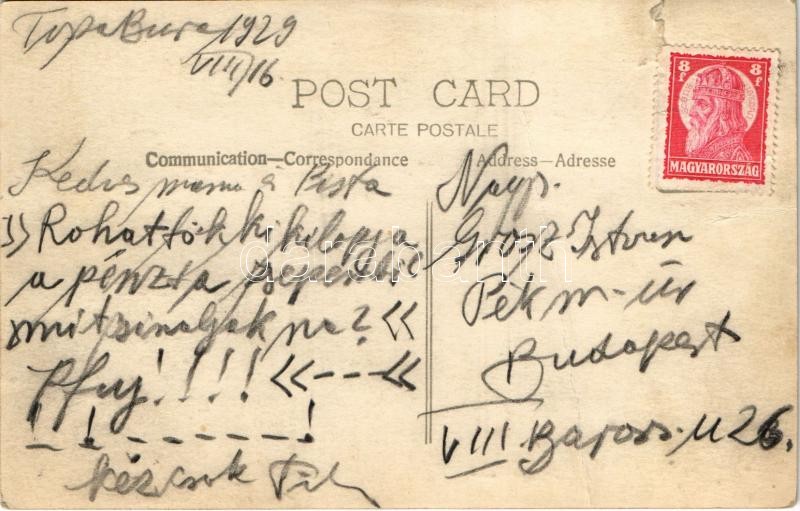 TiszaBura 1929
VIII/16
POST CARD
CARTE POSTALE
Communication—Correspondance
Address—Adresse
8 f
8 f
MAGYARORSZÁG
Kedves mama a Pista
Rohatt tök ki kilopja
a pénzt a zsepedbül
mit tsinaljak na? «
Pfuj!!!! «---«
! ! - - - - - !
kézcsók
Nags.
Grosz Istvan
Pék m-úr
Budapest
VIII Baross u 26.
darabanth